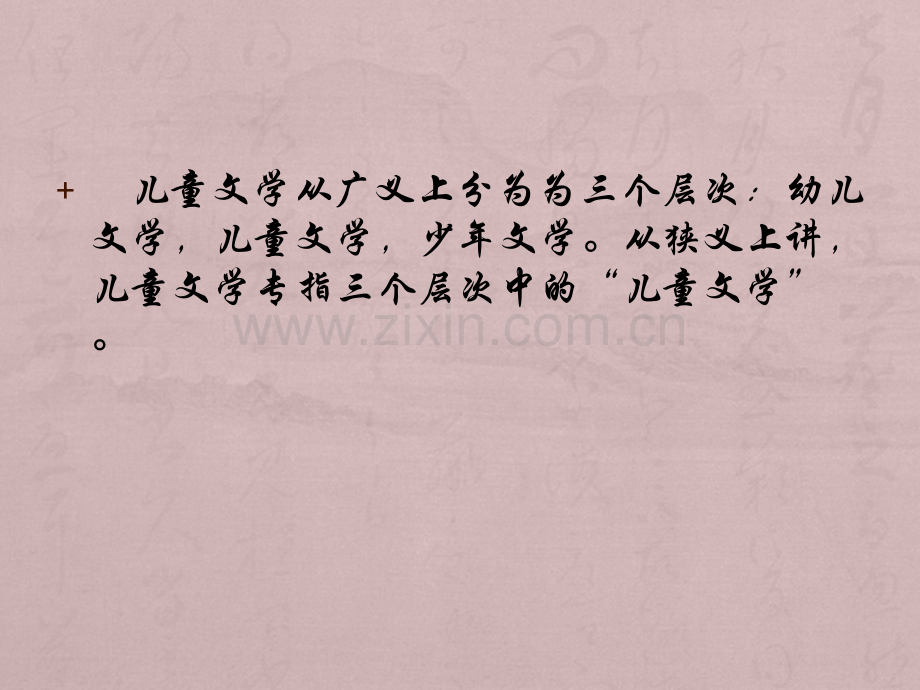 + 儿童文学从广义上分为为三个层次：幼儿
文学，儿童文学，少年文学。从狭义上讲，
儿童文学专指三个层次中的“儿童文学”
。
www.zixin.com.cn